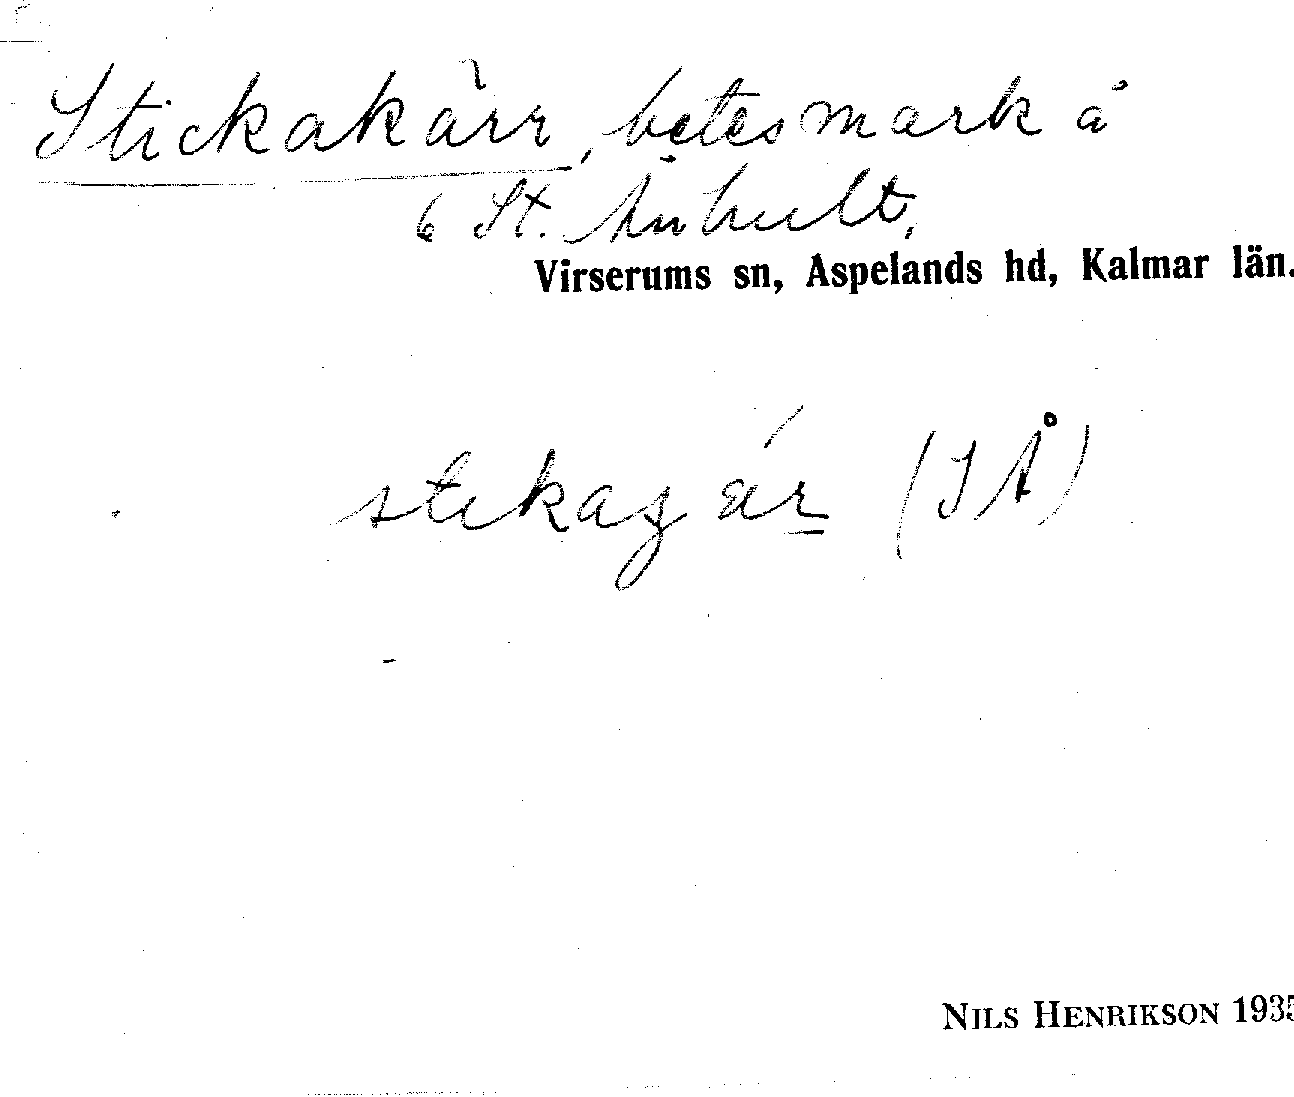 Stickakärr, betesmark å
6 St. Änhult,
Virserums sn, Aspelands hd, Kalmar län.
stikaɟär (IÅ)
NILS HENRIKSON 1935